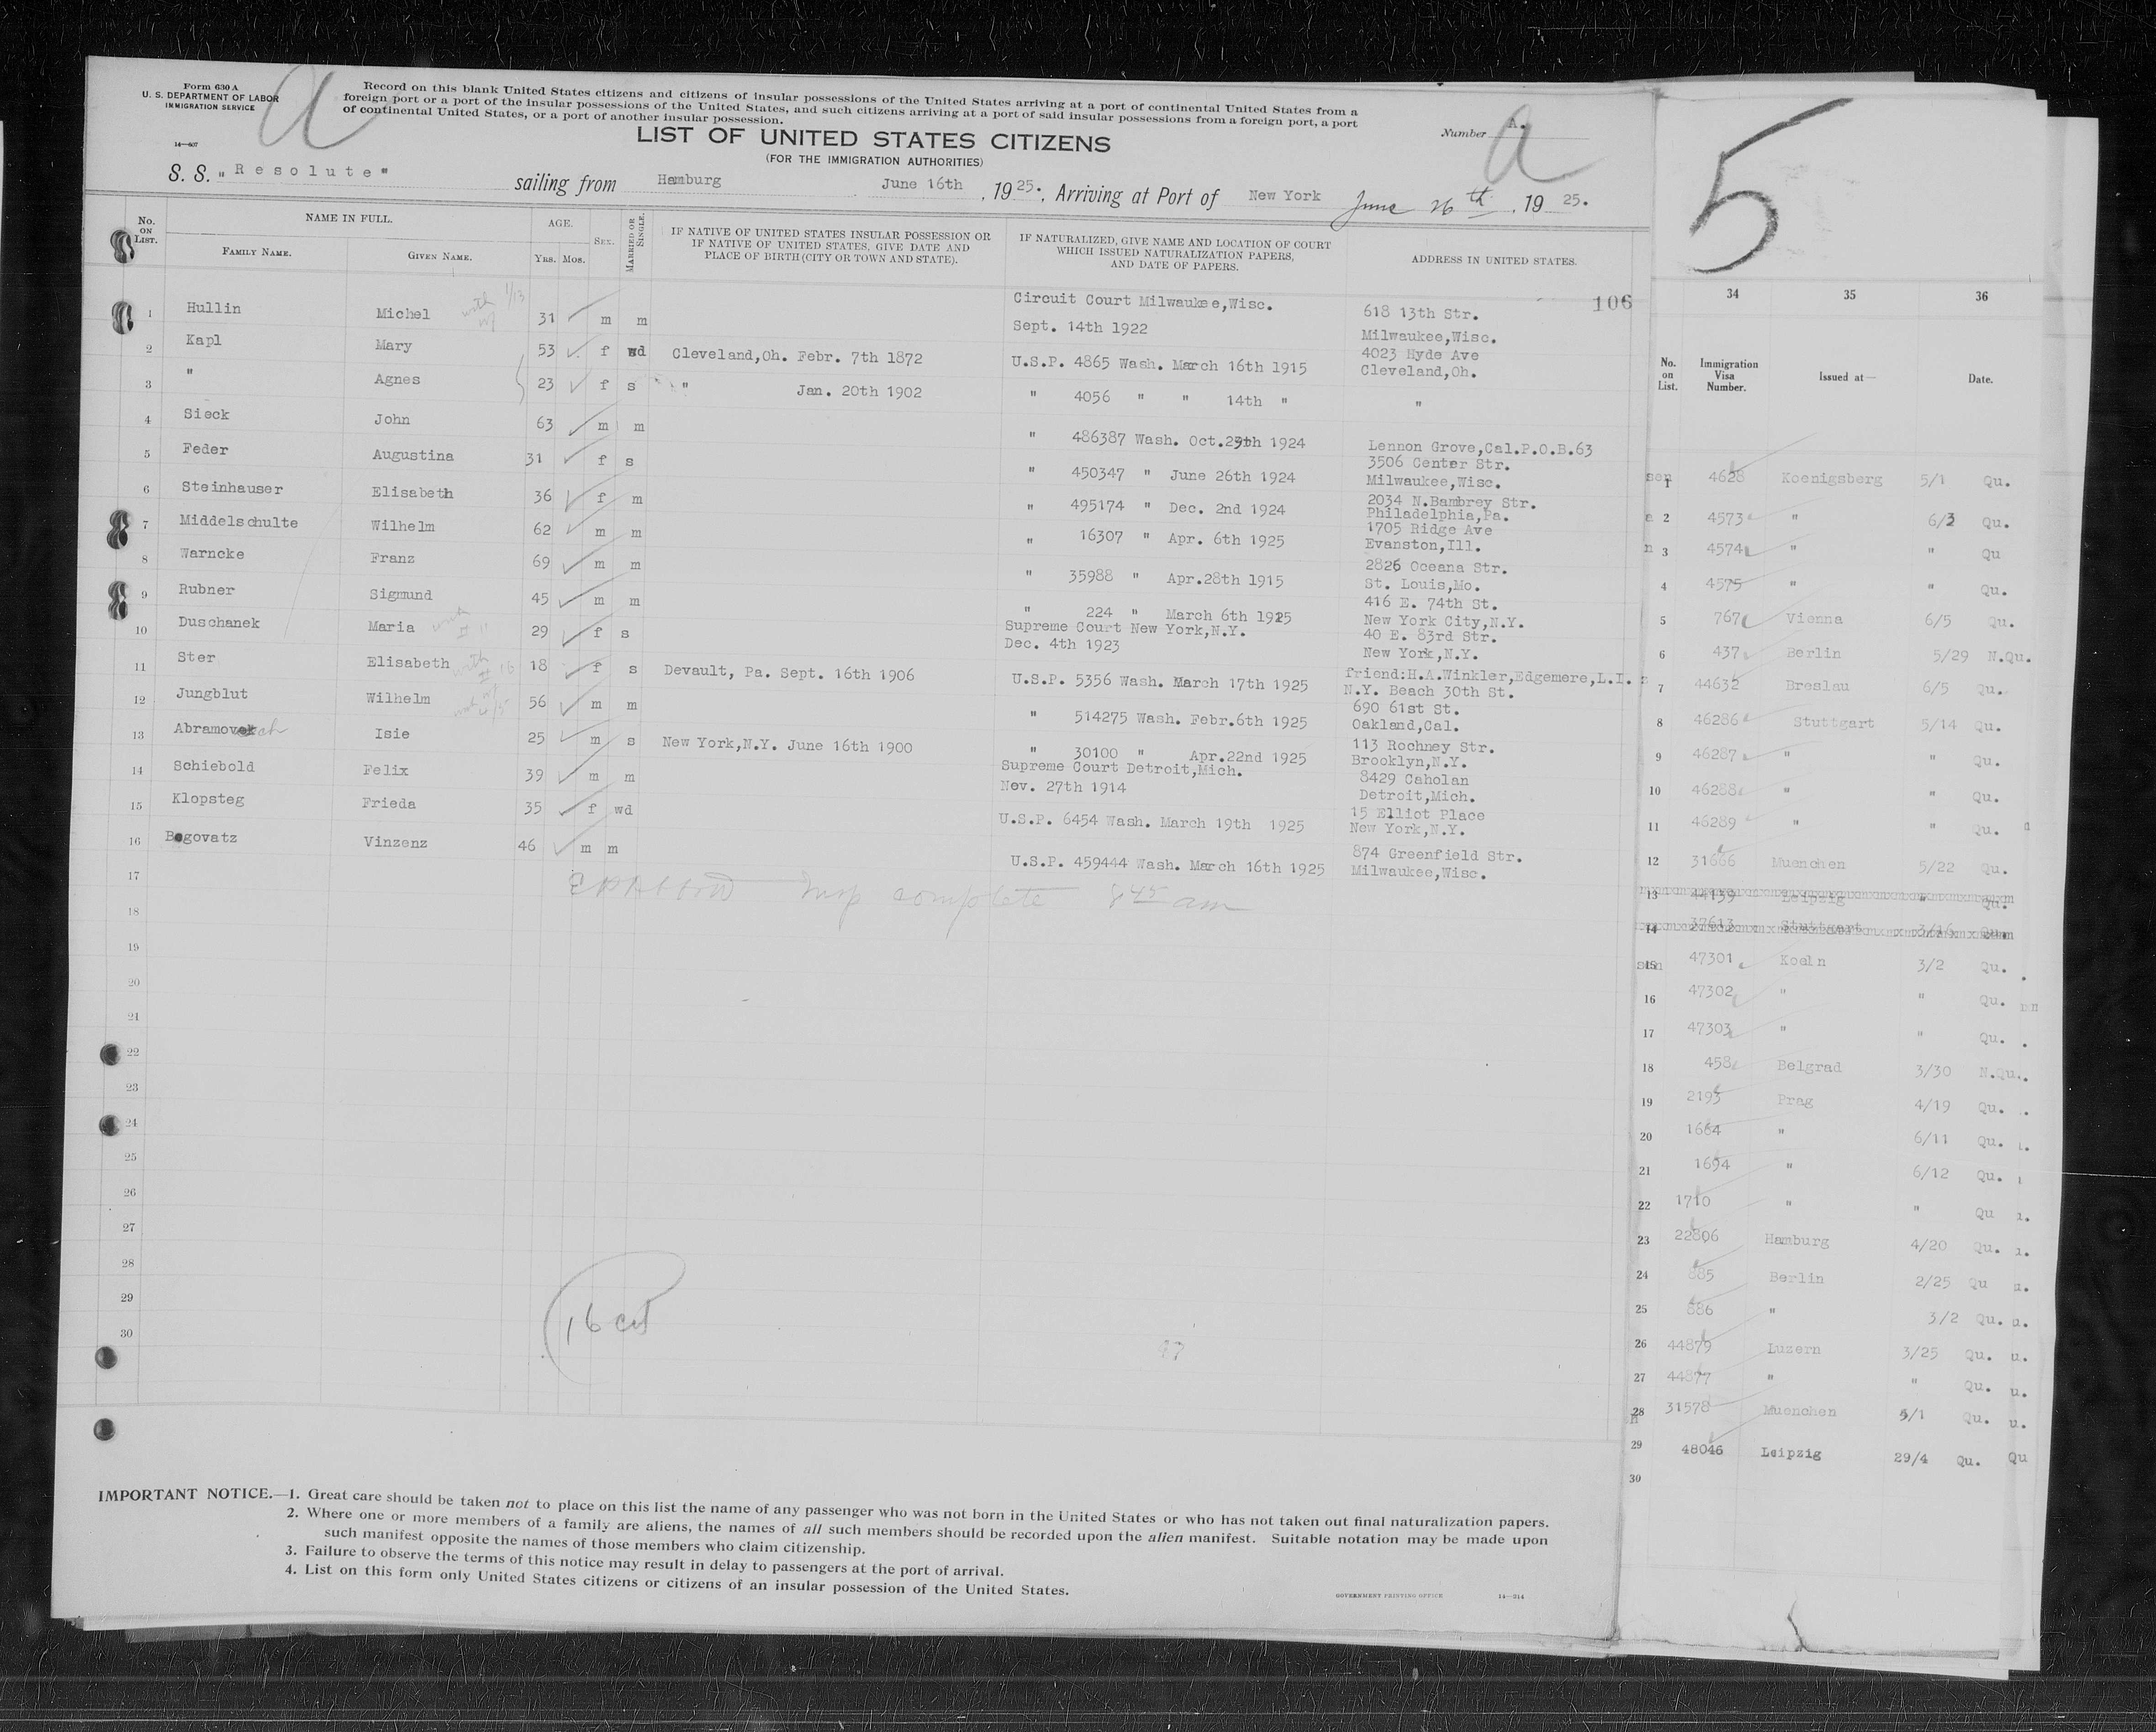 Form 630 A
U. S. DEPARTMENT OF LABOR
IMMIGRATION SERVICE
14—607
a
Record on this blank United States citizens and citizens of insular possessions of the United States arriving at a port of continental United States from a
foreign port or a port of the insular possessions of the United States, and such citizens arriving at a port of said insular possessions from a foreign port, a port
of continental United States, or a port of another insular possession.
LIST OF UNITED STATES CITIZENS
(FOR THE IMMIGRATION AUTHORITIES)
Number A.
a
S. S. "Resolute" sailing from Hamburg June 16th, 1925. Arriving at Port of New York June 26th, 1925.
No. ON LIST. NAME IN FULL. AGE. SEX. MARRIED OR SINGLE. IF NATIVE OF UNITED STATES INSULAR POSSESSION OR IF NATIVE OF UNITED STATES, GIVE DATE AND PLACE OF BIRTH (CITY OR TOWN AND STATE). IF NATURALIZED, GIVE NAME AND LOCATION OF COURT WHICH ISSUED NATURALIZATION PAPERS, AND DATE OF PAPERS. ADDRESS IN UNITED STATES.
FAMILY NAME. GIVEN NAME. YRS. MOS.
106
1 Hullin Michel 31 m m Circuit Court Milwaukee,Wisc. Sept. 14th 1922 618 13th Str. Milwaukee,Wisc.
2 Kapl Mary 53 f wd Cleveland,Oh. Febr. 7th 1872 U.S.P. 4865 Wash. March 16th 1915 4023 Hyde Ave Cleveland,Oh.
3 " Agnes 23 f s " Jan. 20th 1902 " 4056 " " 14th " "
4 Sieck John 63 m m " 486387 Wash. Oct. 1924 Lennon Grove,Cal.P.O.B.63
5 Feder Augustina 31 f s " 450347 " June 26th 1924 3506 Center Str. Milwaukee,Wisc.
6 Steinhauser Elisabeth 36 f m " 495174 " Dec. 2nd 1924 2034 N.Bambrey Str. Philadelphia,Pa.
7 Middelschulte Wilhelm 62 m m " 16307 " Apr. 6th 1925 1705 Ridge Ave Evanston,Ill.
8 Warncke Franz 69 m m " 35988 " Apr.28th 1915 2826 Oceana Str. St. Louis,Mo.
9 Rubner Sigmund 45 m m " 224 " March 6th 1925 416 E. 74th St. New York City,N.Y.
10 Duschanek Maria 29 f s Supreme Court New York,N.Y. Dec. 4th 1923 40 E. 83rd Str. New York,N.Y.
11 Ster Elisabeth 18 f s Devault, Pa. Sept. 16th 1906 U.S.P. 5356 Wash. March 17th 1925 friend:H.A.Winkler,Edgemere,L.I. N.Y. Beach 30th St.
12 Jungblut Wilhelm 56 m m " 514275 Wash. Febr.6th 1925 690 61st St. Oakland,Cal.
13 Abramovich Isie 25 m s New York,N.Y. June 16th 1900 " 30100 " Apr.22nd 1925 113 Rochney Str. Brooklyn,N.Y.
14 Schiebold Felix 39 m m Supreme Court Detroit,Mich. Nov. 27th 1914 8429 Caholan Detroit,Mich.
15 Klopsteg Frieda 35 f wd U.S.P. 6454 Wash. March 19th 1925 15 Elliot Place New York,N.Y.
16 Bogovatz Vinzenz 46 m m U.S.P. 459444 Wash. March 16th 1925 874 Greenfield Str. Milwaukee,Wisc.
17
Insp complete 8 45 am
18
19
20
21
22
23
24
25
26
27
28
29
30
16
97
IMPORTANT NOTICE.—1. Great care should be taken not to place on this list the name of any passenger who was not born in the United States or who has not taken out final naturalization papers.
2. Where one or more members of a family are aliens, the names of all such members should be recorded upon the alien manifest. Suitable notation may be made upon
such manifest opposite the names of those members who claim citizenship.
3. Failure to observe the terms of this notice may result in delay to passengers at the port of arrival.
4. List on this form only United States citizens or citizens of an insular possession of the United States.
GOVERNMENT PRINTING OFFICE 14—314
5
34 35 36
No. on List. Immigration Visa Number. Issued at— Date.
1 4628 Koenigsberg 5/1 Qu.
2 4573 " 6/3 Qu.
3 4574 " " Qu
4 4575 " " Qu.
5 767 Vienna 6/5 Qu.
6 437 Berlin 5/29 N.Qu.
7 44632 Breslau 6/5 Qu.
8 46286 Stuttgart 5/14 Qu.
9 46287 " " Qu.
10 46288 " " Qu.
11 46289 " " Qu.
12 31666 Muenchen 5/22 Qu.
13 44139 Leipzig " Qu.
14 37613 Stuttgart 3/16
15 47301 Koeln 3/2 Qu.
16 47302 " " Qu.
17 47303 " " Qu.
18 458 Belgrad 3/30 N.Qu.
19 2193 Prag 4/19 Qu.
20 1664 " 6/11 Qu.
21 1694 " 6/12 Qu.
22 1710 " " Qu
23 22806 Hamburg 4/20 Qu.
24 885 Berlin 2/25 Qu
25 886 " 3/2 Qu.
26 44879 Luzern 3/25 Qu.
27 44877 " " Qu.
28 31578 Muenchen 5/1 Qu.
29 48046 Leipzig 29/4 Qu. Qu
30